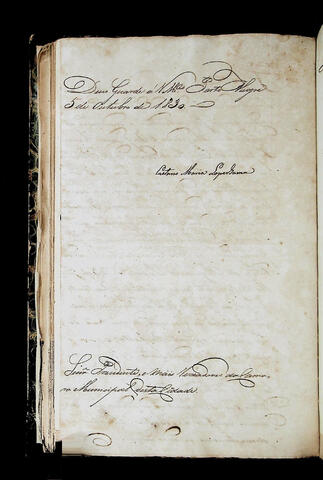 Deus Guarde a V. M.ces Porto Alegre
5 de Outubro de 1830
Caetano Maria Lopes Gama
Senr. Presidente, e mais Vereadores da Cama-
ra Municipal desta Cidade.